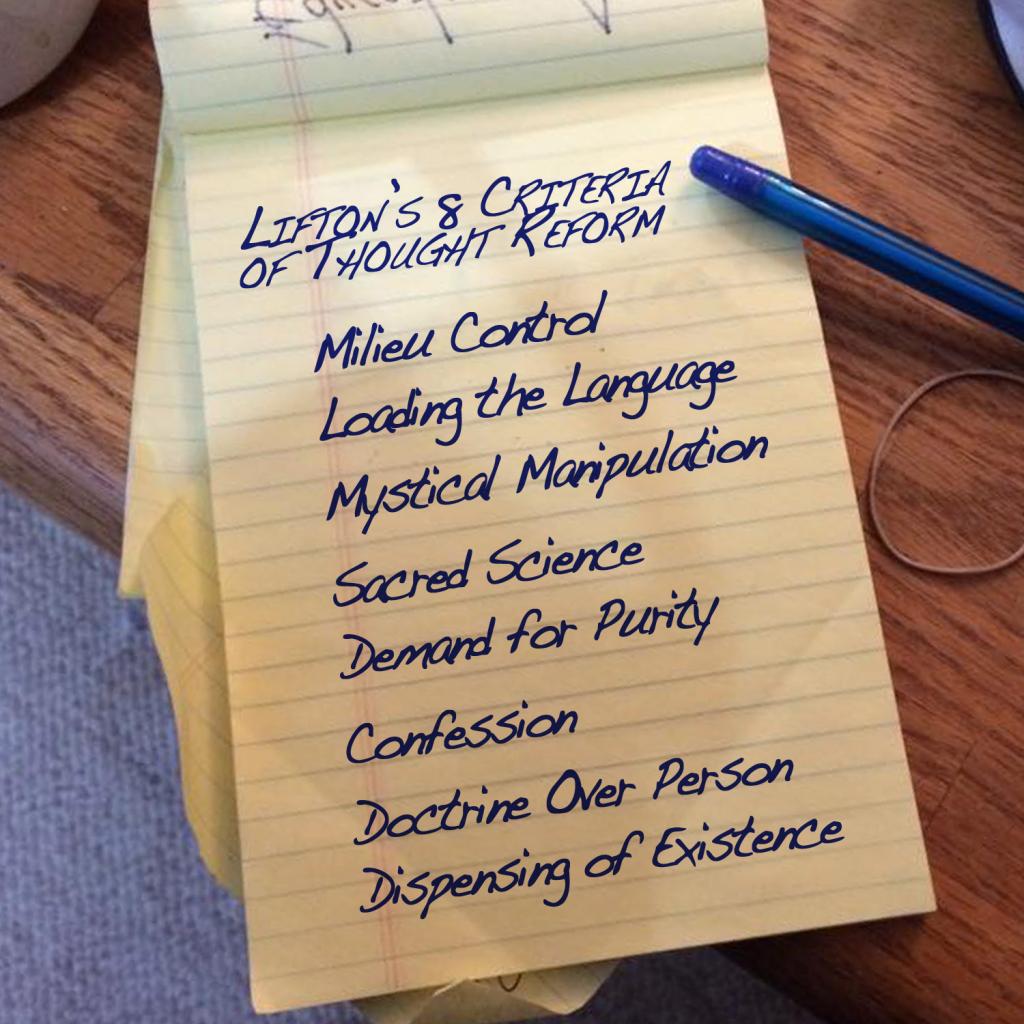 LIFTON'S 8 CRITERIA
OF THOUGHT REFORM
Milieu Control
Loading the Language
Mystical Manipulation
Sacred Science
Demand for Purity
Confession
Doctrine Over Person
Dispensing of Existence